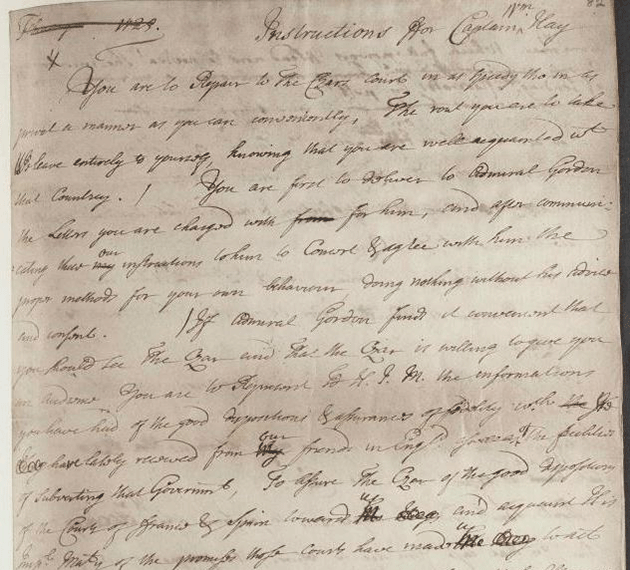 1728.
82
Instructions for Captain Wm Hay
X
You are to Repair to The Czars Court in as speedy tho in as
privat a manner as you can conveniently, The rout you are to take
We leave entirely to yourself, knowing that you are well acquainted wt
that Countrey. / You are first to deliver to Admiral Gordon
the Letters you are charged with from for him, and after communi-
cating these my our instructions to him to Concert & agree with him the
proper methods for your own behaviour doing nothing without his advice
and consent. / If Admiral Gordon finds it convenient that
you should see The Czar and that the Czar is willing to give you
an audience You are to Represent to H. I. M. the informations
you have had of the good dispositions & assurances of fidelity wch the
have lately received from my our friends in Engld: The facilities
of subverting that Governmt, To assure The Czar of the good dispositions
of the Courts of France & Spain toward us and acquaint His
Impl: Maty of the promises those Courts have made us to